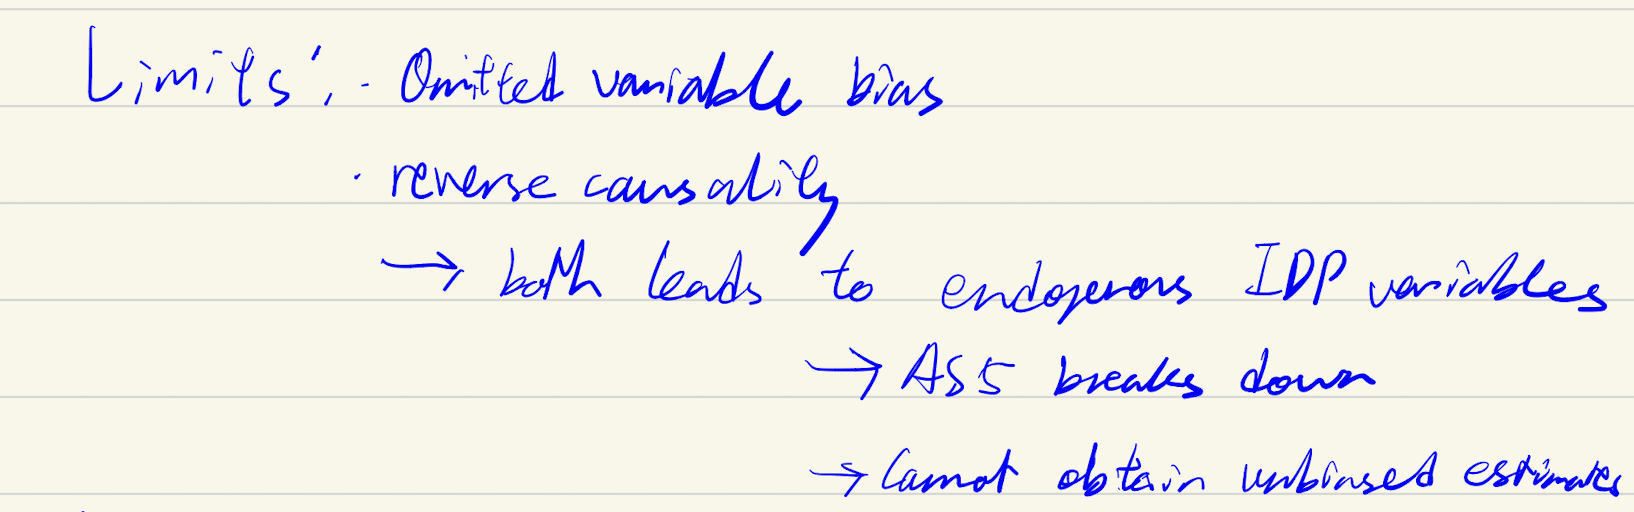 Limits: · Omitted variable bias
· reverse causality
→ both leads to endogenous IDP variables
→ AS5 breaks down
→ Cannot obtain unbiased estimates